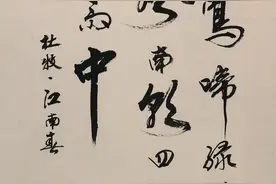 鶯啼绿
南朝四
雨中
杜牧·江南春